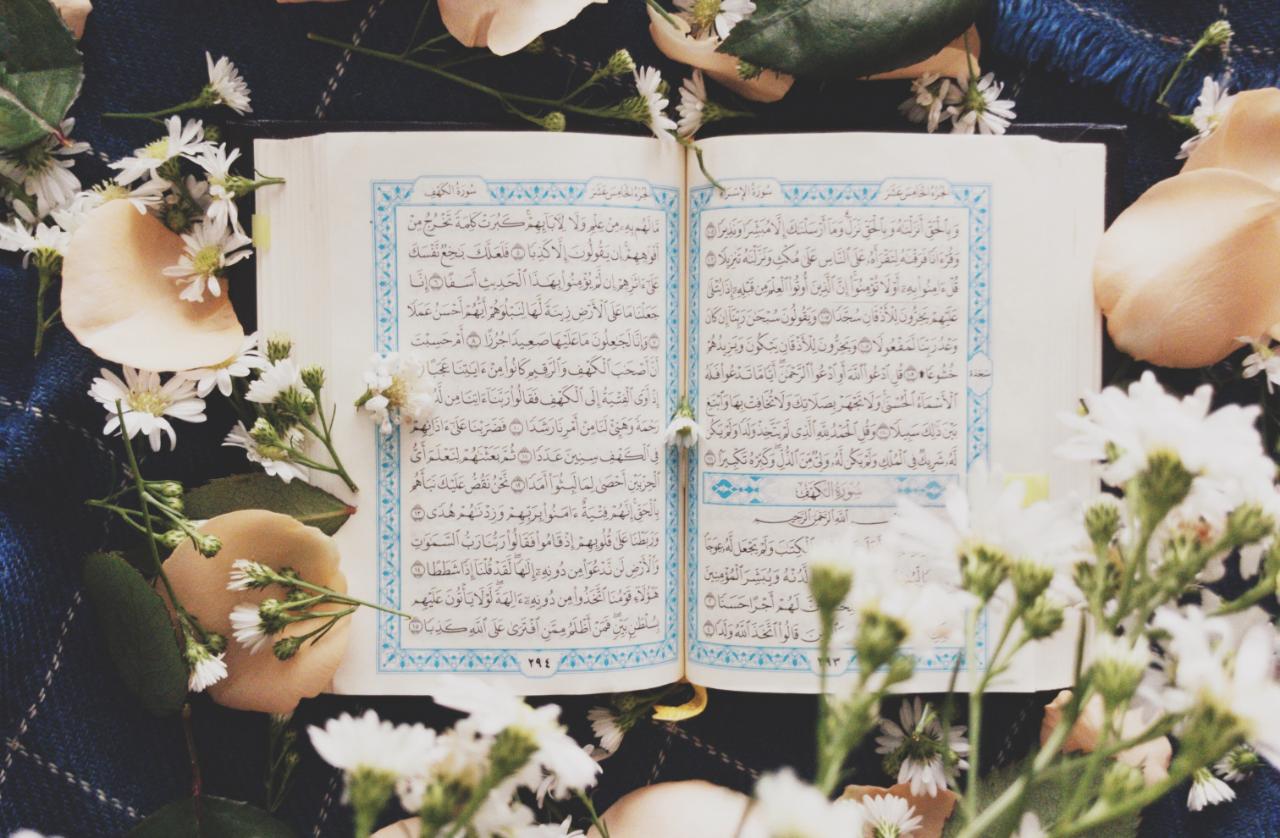 الجُزْءُ الخَامِسَ عَشَرَ سُورَةُ الإِسْرَاءِ
وَبِٱلْحَقِّ أَنزَلْنَٰهُ وَبِٱلْحَقِّ نَزَلَ ۗ وَمَآ أَرْسَلْنَٰكَ إِلَّا مُبَشِّرًا وَنَذِيرًا ١٠٥
وَقُرْءَانًا فَرَقْنَٰهُ لِتَقْرَأَهُۥ عَلَى ٱلنَّاسِ عَلَىٰ مُكْثٍ وَنَزَّلْنَٰهُ تَنزِيلًا ١٠٦
قُلْ ءَامِنُوا۟ بِهِۦٓ أَوْ لَا تُؤْمِنُوٓا۟ ۚ إِنَّ ٱلَّذِينَ أُوتُوا۟ ٱلْعِلْمَ مِن قَبْلِهِۦٓ إِذَا يُتْلَىٰ
عَلَيْهِمْ يَخِرُّونَ لِلْأَذْقَانِ سُجَّدًا ١٠٧ وَيَقُولُونَ سُبْحَٰنَ رَبِّنَآ إِن كَانَ
وَعْدُ رَبِّنَا لَمَفْعُولًا ١٠٨ وَيَخِرُّونَ لِلْأَذْقَانِ يَبْكُونَ وَيَزِيدُهُمْ
خُشُوعًا ۩ ١٠٩ قُلِ ٱدْعُوا۟ ٱللَّهَ أَوِ ٱدْعُوا۟ ٱلرَّحْمَٰنَ ۖ أَيًّا مَّا تَدْعُوا۟ فَلَهُ
سَجْدَة
ٱلْأَسْمَآءُ ٱلْحُسْنَىٰ ۚ وَلَا تَجْهَرْ بِصَلَاتِكَ وَلَا تُخَافِتْ بِهَا وَٱبْتَغِ
بَيْنَ ذَٰلِكَ سَبِيلًا ١١٠ وَقُلِ ٱلْحَمْدُ لِلَّهِ ٱلَّذِى لَمْ يَتَّخِذْ وَلَدًا وَلَمْ يَكُن
لَّهُۥ شَرِيكٌ فِى ٱلْمُلْكِ وَلَمْ يَكُن لَّهُۥ وَلِىٌّ مِّنَ ٱلذُّلِّ ۖ وَكَبِّرْهُ تَكْبِيرًۢا ١١١
سُورَةُ الكَهْفِ
ٱللَّهِ ٱلرَّحْمَٰنِ ٱلرَّحِيمِ
ٱلْكِتَٰبَ وَلَمْ يَجْعَل لَّهُۥ عِوَجَا
لَّدُنْهُ وَيُبَشِّرَ ٱلْمُؤْمِنِينَ
لَهُمْ أَجْرًا حَسَنًا ٢
قَالُوا۟ ٱتَّخَذَ ٱللَّهُ وَلَدًا ٤
٢٩٣
الجُزْءُ الخَامِسَ عَشَرَ سُورَةُ الكَهْفِ
مَّا لَهُم بِهِۦ مِنْ عِلْمٍ وَلَا لِءَابَآئِهِمْ ۚ كَبُرَتْ كَلِمَةً تَخْرُجُ مِنْ
أَفْوَٰهِهِمْ ۚ إِن يَقُولُونَ إِلَّا كَذِبًا ٥ فَلَعَلَّكَ بَٰخِعٌ نَّفْسَكَ
عَلَىٰٓ ءَاثَٰرِهِمْ إِن لَّمْ يُؤْمِنُوا۟ بِهَٰذَا ٱلْحَدِيثِ أَسَفًا ٦ إِنَّا
جَعَلْنَا مَا عَلَى ٱلْأَرْضِ زِينَةً لَّهَا لِنَبْلُوَهُمْ أَيُّهُمْ أَحْسَنُ عَمَلًا
٧ وَإِنَّا لَجَٰعِلُونَ مَا عَلَيْهَا صَعِيدًا جُرُزًا ٨ أَمْ حَسِبْتَ
أَنَّ أَصْحَٰبَ ٱلْكَهْفِ وَٱلرَّقِيمِ كَانُوا۟ مِنْ ءَايَٰتِنَا عَجَبًا
إِذْ أَوَى ٱلْفِتْيَةُ إِلَى ٱلْكَهْفِ فَقَالُوا۟ رَبَّنَآ ءَاتِنَا مِن
رَحْمَةً وَهَيِّئْ لَنَا مِنْ أَمْرِنَا رَشَدًا ١٠ فَضَرَبْنَا عَلَىٰٓ ءَاذَانِهِمْ
فِى ٱلْكَهْفِ سِنِينَ عَدَدًا ١١ ثُمَّ بَعَثْنَٰهُمْ لِنَعْلَمَ أَىُّ
ٱلْحِزْبَيْنِ أَحْصَىٰ لِمَا لَبِثُوٓا۟ أَمَدًا ١٢ نَّحْنُ نَقُصُّ عَلَيْكَ نَبَأَهُم
بِٱلْحَقِّ ۚ إِنَّهُمْ فِتْيَةٌ ءَامَنُوا۟ بِرَبِّهِمْ وَزِدْنَٰهُمْ هُدًى ١٣
وَرَبَطْنَا عَلَىٰ قُلُوبِهِمْ إِذْ قَامُوا۟ فَقَالُوا۟ رَبُّنَا رَبُّ ٱلسَّمَٰوَٰتِ
وَٱلْأَرْضِ لَن نَّدْعُوَا۟ مِن دُونِهِۦٓ إِلَٰهًا ۖ لَّقَدْ قُلْنَآ إِذًا شَطَطًا ١٤
هَٰٓؤُلَآءِ قَوْمُنَا ٱتَّخَذُوا۟ مِن دُونِهِۦٓ ءَالِهَةً ۖ لَّوْلَا يَأْتُونَ عَلَيْهِم
بِسُلْطَٰنٍۭ بَيِّنٍ ۖ فَمَنْ أَظْلَمُ مِمَّنِ ٱفْتَرَىٰ عَلَى ٱللَّهِ كَذِبًا ١٥
٢٩٤